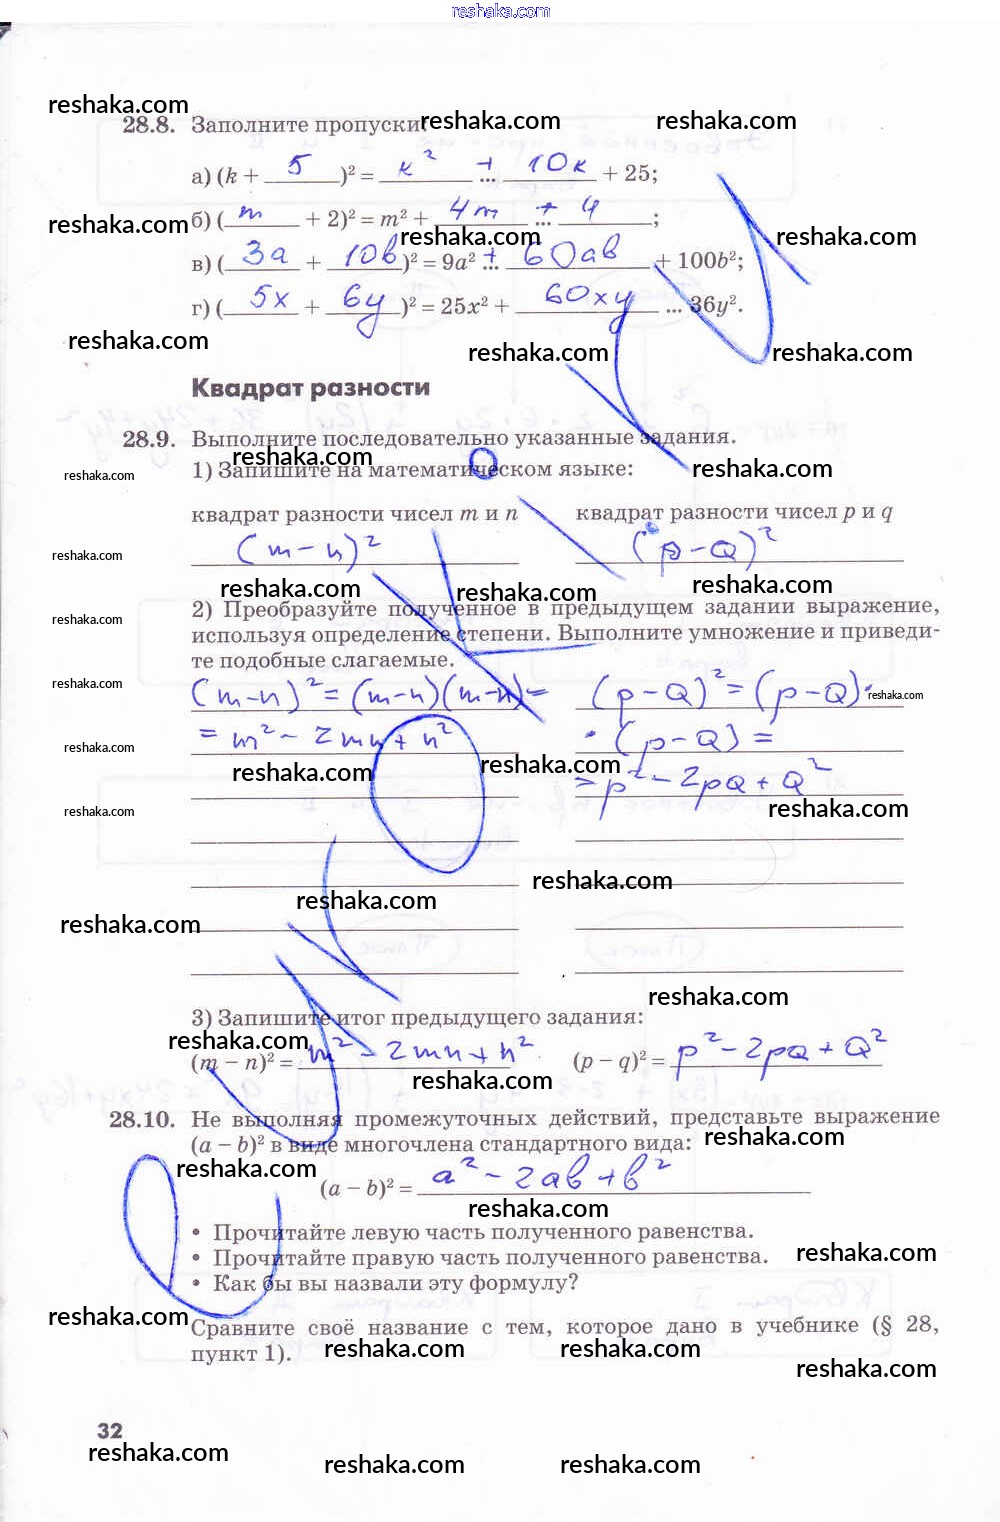 reshaka.com
reshaka.com
28.8. Заполните пропуски: reshaka.com reshaka.com
а) (k + 5)² = к² + 10к + 25;
reshaka.com б) (m + 2)² = m² + 4m + 4;
reshaka.com reshaka.com
в) (3a + 10b)² = 9a² + 60ab + 100b²;
г) (5x + 6y)² = 25x² + 60xy ... 36y².
reshaka.com reshaka.com reshaka.com
Квадрат разности
28.9. Выполните последовательно указанные задания.
reshaka.com
1) Запишите на математическом языке: reshaka.com
reshaka.com
квадрат разности чисел m и n квадрат разности чисел p и q
reshaka.com (m - n)² (p - Q)²
reshaka.com reshaka.com reshaka.com
2) Преобразуйте полученное в предыдущем задании выражение,
reshaka.com
используя определение степени. Выполните умножение и приведи-
те подобные слагаемые.
reshaka.com (m-n)² = (m-n)(m-n) = (p-Q)² = (p-Q)· reshaka.com
= m² - 2mn + n² ·(p-Q) =
reshaka.com
reshaka.com reshaka.com = p² - 2pQ + Q²
reshaka.com reshaka.com
reshaka.com
reshaka.com
reshaka.com
reshaka.com
3) Запишите итог предыдущего задания:
reshaka.com
(m – n)² = m² - 2mn + n² (p – q)² = p² - 2pQ + Q²
reshaka.com
28.10. Не выполняя промежуточных действий, представьте выражение
(a – b)² в виде многочлена стандартного вида: reshaka.com
reshaka.com
(a – b)² = a² - 2ab + b²
reshaka.com
• Прочитайте левую часть полученного равенства.
• Прочитайте правую часть полученного равенства. reshaka.com
• Как бы вы назвали эту формулу?
reshaka.com
Сравните своё название с тем, которое дано в учебнике (§ 28,
пункт 1). reshaka.com reshaka.com
reshaka.com
32
reshaka.com reshaka.com reshaka.com